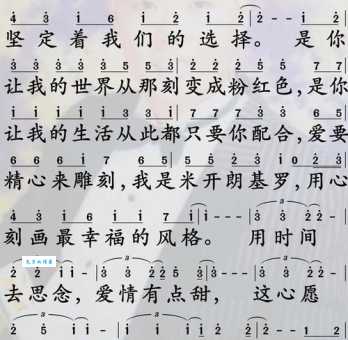 4 3 i 6 i 2 i 2 i 2 - - i 2
坚定着我们的选择。 是你
3 3 3 3 3 3 5 5 3 2 2 2 2 2 2 3
让我的世界从那刻变成粉红色,是你
i i i i i i 3 3 i 7 7 7 3 3 6 5
让我的生活从此都只要你配合,爱要
6 6 6 i 7 6 5 5 5 2 3 i 0 2 3
精心来雕刻,我是米开朗基罗,用心
4 3 i 6 i i 7 i i - - - 3 3 2 2 -
刻画最幸福的风格。 用时间
2 2 i i - 3 3 2 2 5 3 3 - - - 3 3 2 2 -
去思念, 爱情有点甜, 这心愿
2 5 i i - i i i i i 2 2 - - 1 2